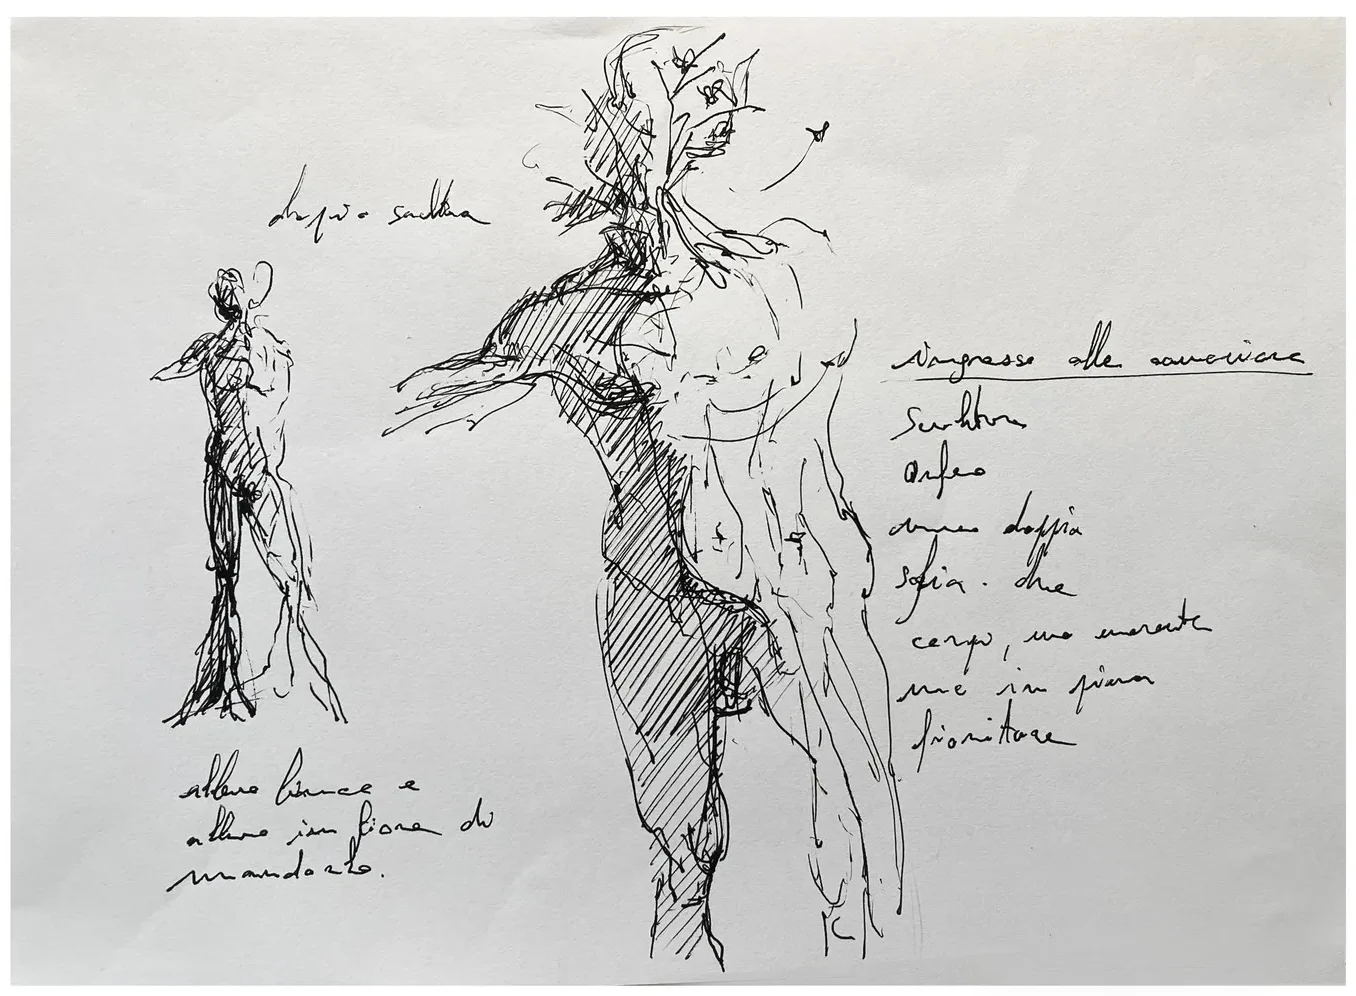 doppia scultura
ingresso alle
Scultura
Orfeo
doppia
sofia. due
corpi, uno morente
uno in piena
fioritura
albero bianco e
albero in fiore di
mandorlo.